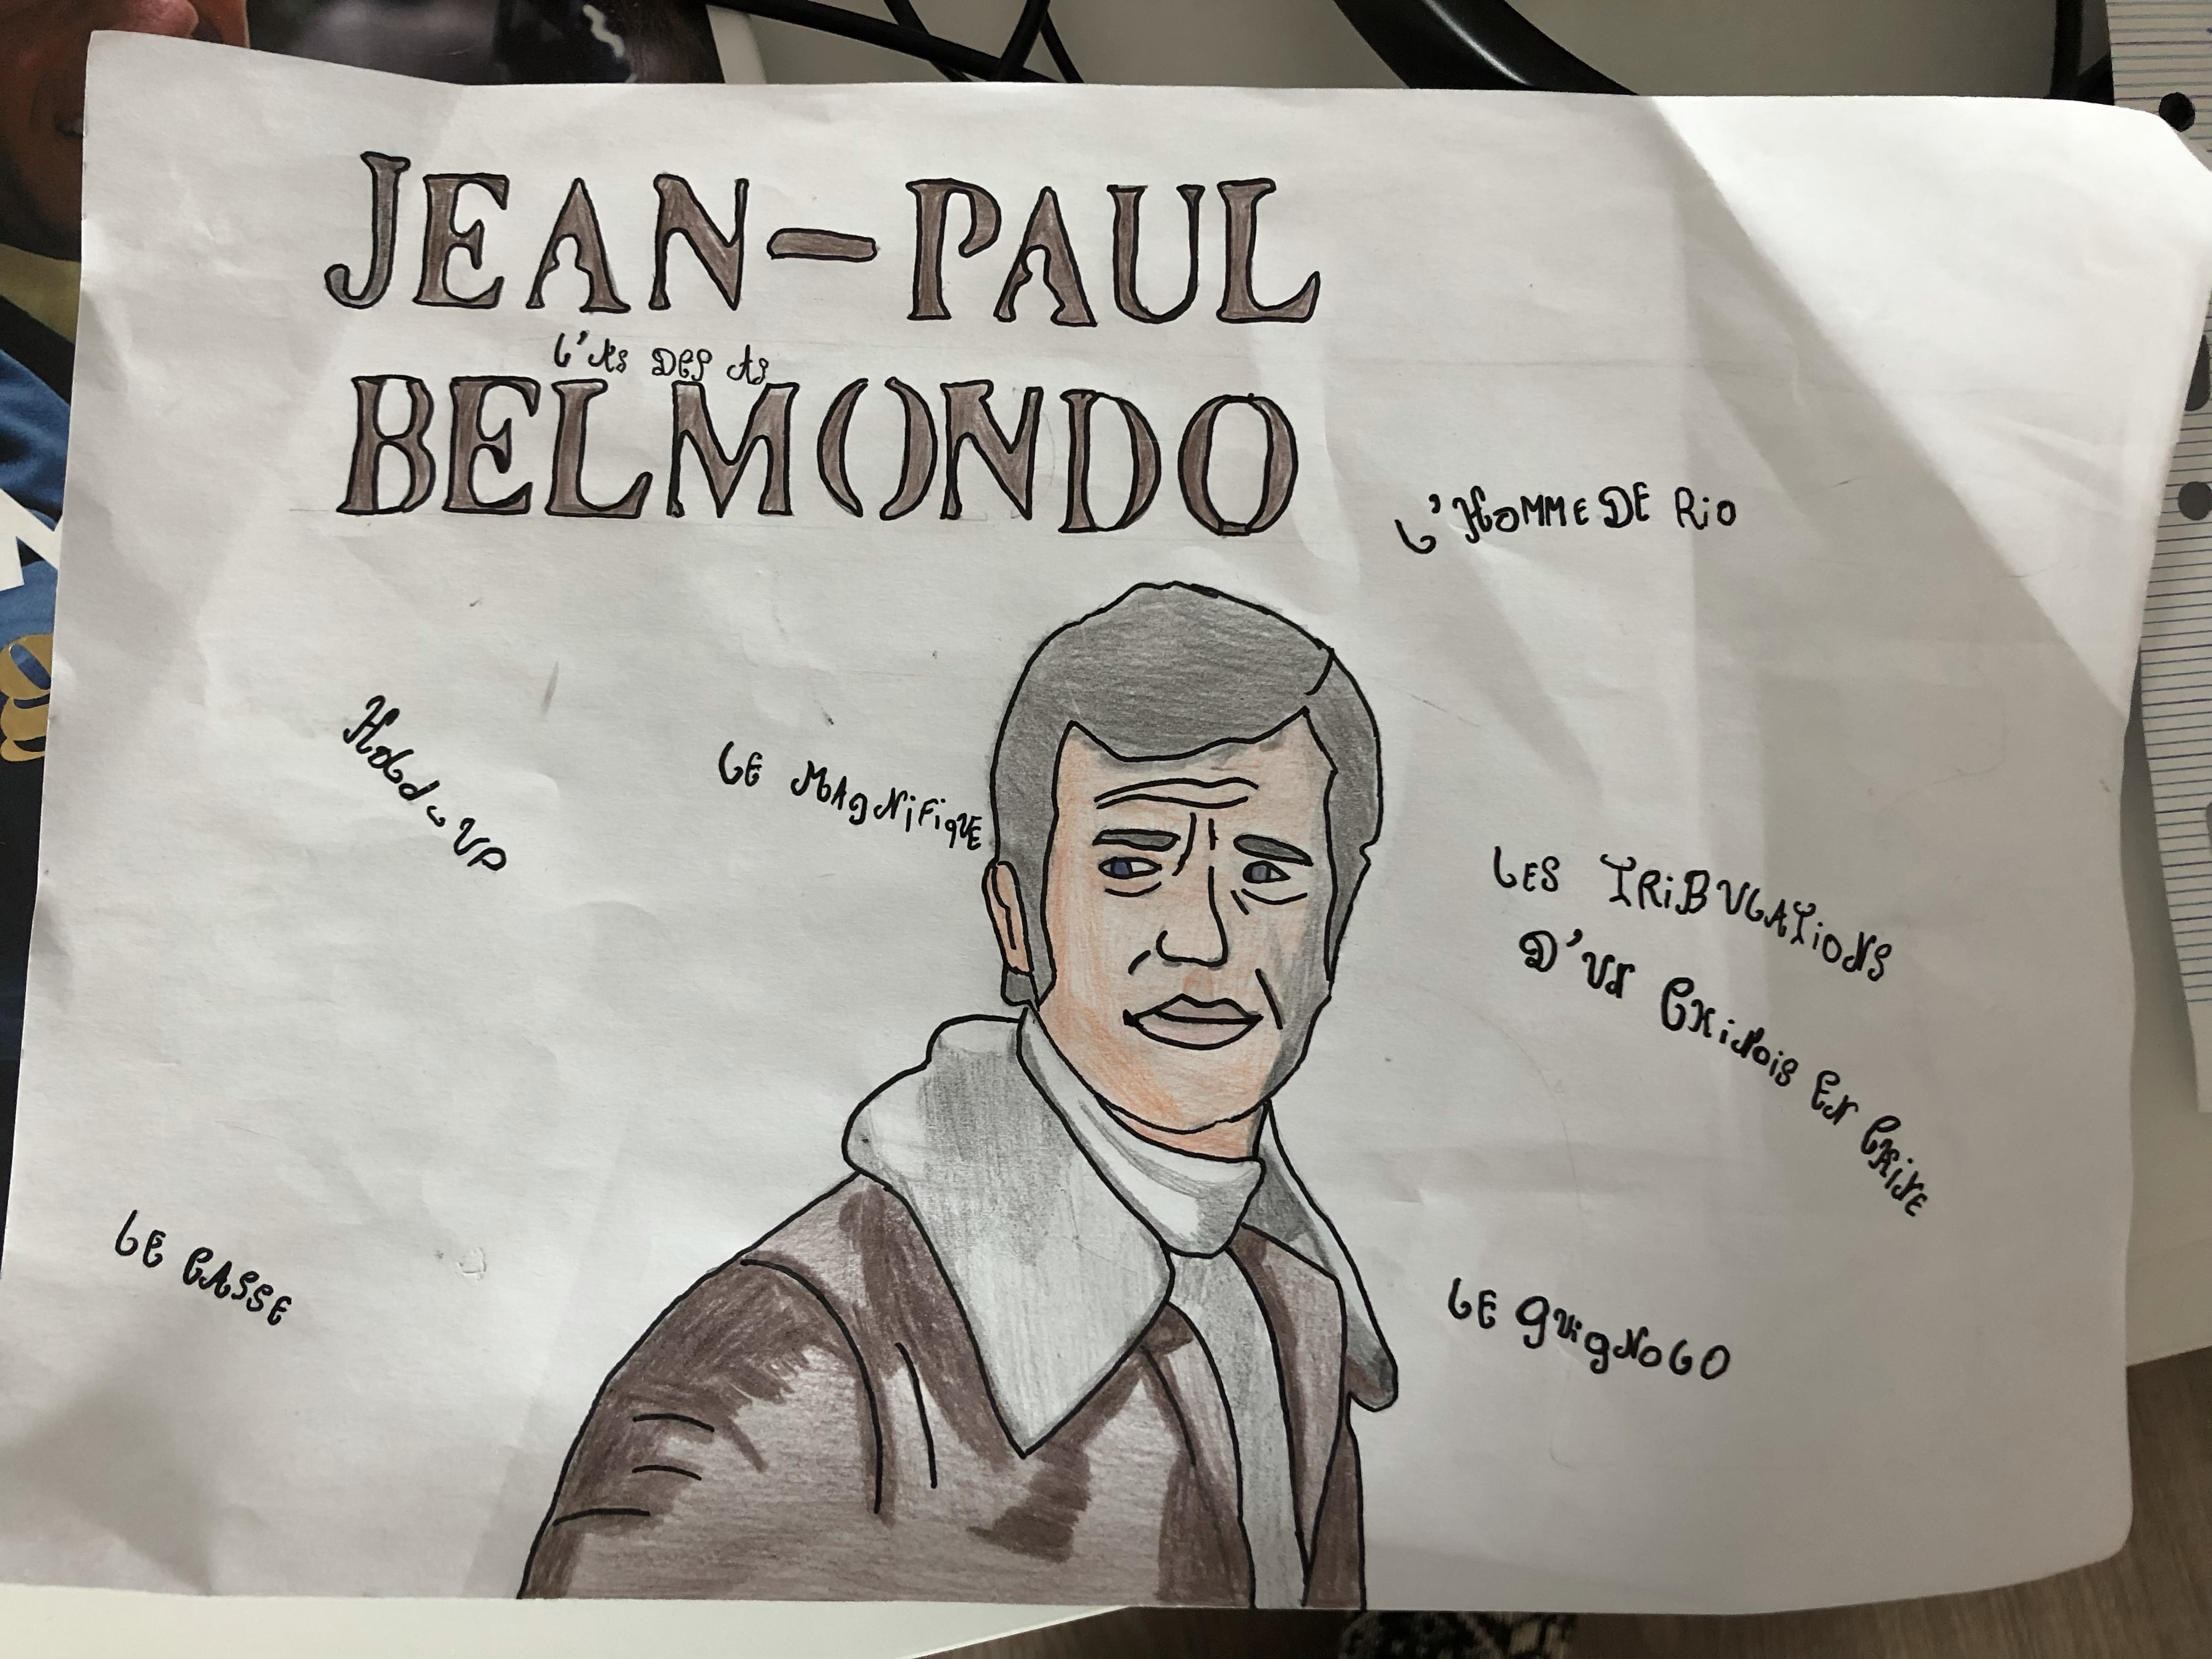 JEAN-PAUL
L'AS DES AS
BELMONDO
L'HOMME DE RiO
HOLD-UP
LE MAgNiFiqUE
LES TRiBULATiONS
D'UN CHiNOiS EN CHiNE
LE CASSE
LE guigNOLO